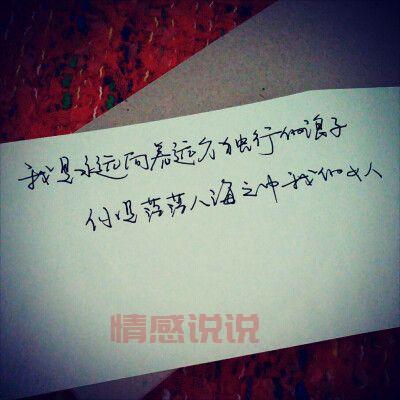 我是永远向着远方独行的浪子
你是茫茫人海之中我的女人
情感说说